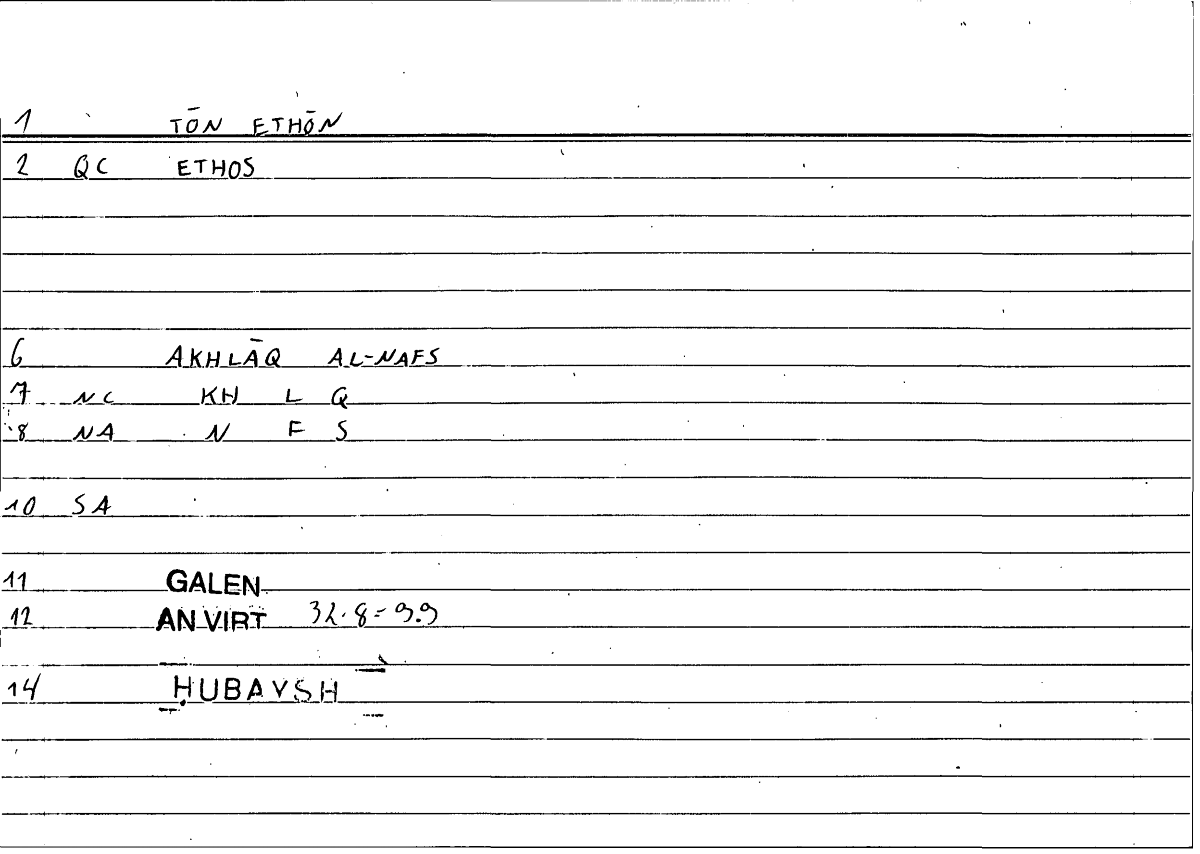 1 TŌN ETHŌN
2 QC ETHOS
6 AKHLĀQ AL-NAFS
7 NC KH L Q
8 NA N F S
10 SA
11 GALEN
12 AN VIRT 32.8-9.9
14 ḤUBAYSH